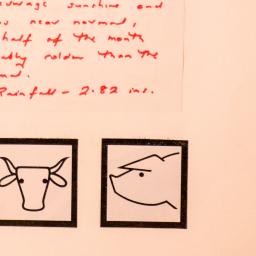 average sunshine and
near normal,
half of the month
colder than the
Rainfall - 2.82 ins.